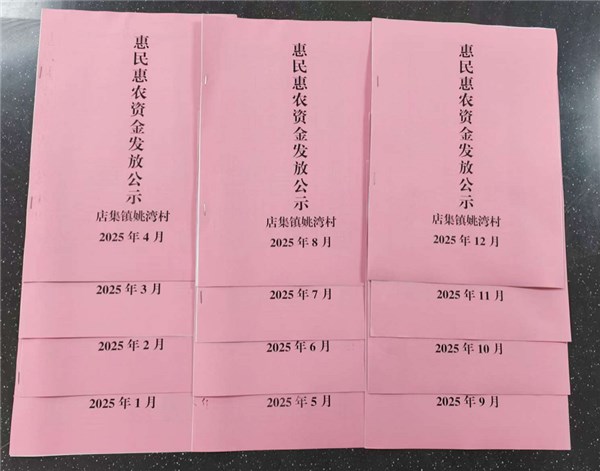 惠民惠农资金发放公示
店集镇姚湾村
2025 年 4 月
2025 年 3 月
2025 年 2 月
2025 年 1 月
惠民惠农资金发放公示
店集镇姚湾村
2025 年 8 月
2025 年 7 月
2025 年 6 月
2025 年 5 月
惠民惠农资金发放公示
店集镇姚湾村
2025 年 12 月
2025 年 11 月
2025 年 10 月
2025 年 9 月